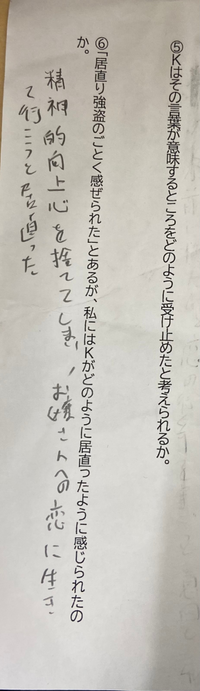 ⑤Kはその言葉が意味するところをどのように受け止めたと考えられるか。
⑥「居直り強盗のごとく感ぜられた」とあるが、私にはKがどのように居直ったように感じられたの
か。
精神的向上心を捨ててしまい、お嬢さんへの恋に生き
て行こうと居直った